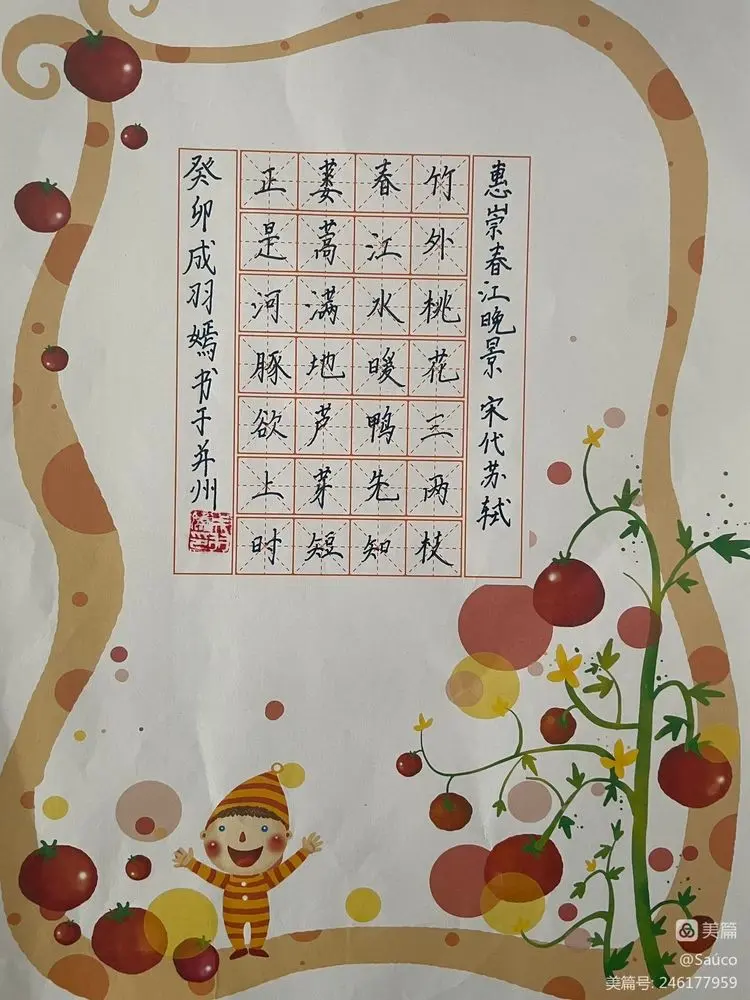 惠崇春江晚景 宋代苏轼
竹外桃花三两枝
春江水暖鸭先知
蒌蒿满地芦芽短
正是河豚欲上时
癸卯成羽嫣书于并州
美篇
@Saúco
美篇号: 246177959